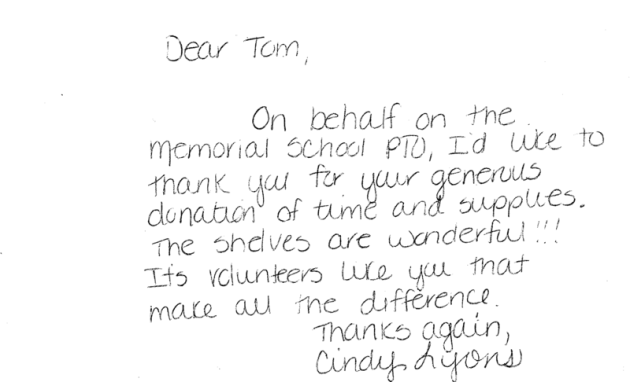 Dear Tom,
On behalf on the
Memorial School PTO, I'd like to
thank you for your generous
donation of time and supplies.
The shelves are wonderful!!!
Its volunteers like you that
make all the difference.
Thanks again,
Cindy Lyons